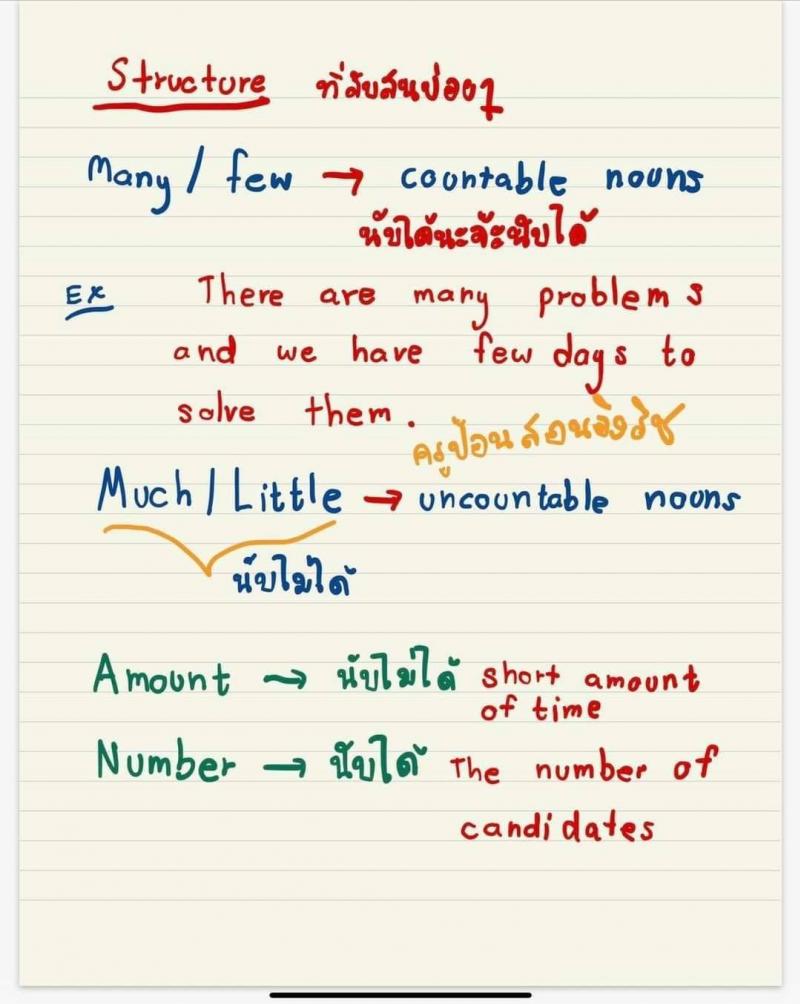 Structure ที่สับสนบ่อยๆ
Many / few → countable nouns
นับได้นะจ้ะนับได้
Ex There are many problems
and we have few days to
solve them.
ครูป้อนสอนอังกริช
Much / Little → uncountable nouns
นับไม่ได้
Amount → นับไม่ได้ short amount
of time
Number → นับได้ The number of
candidates